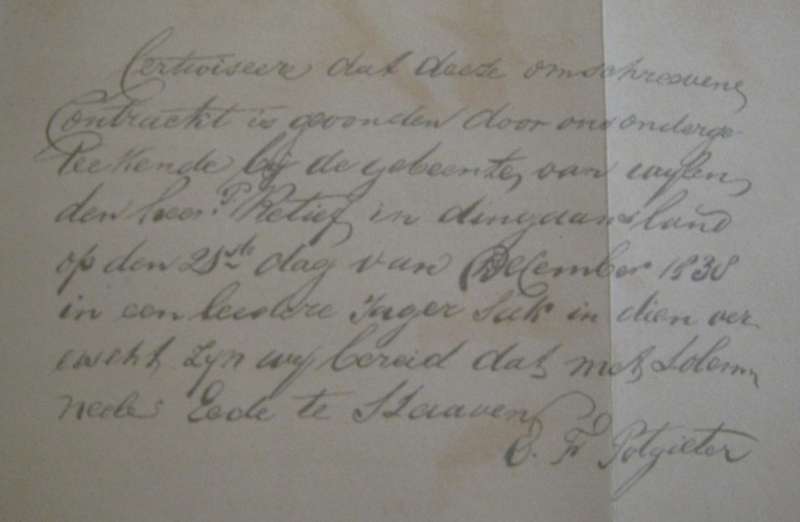 Certwiseere dat deeze omschreevene
Contrackt is gevonden door ons onderge
teekende bij de gebeente, van wylen,
den heer P. Retief, in dingaans land
op den 21ste dag van December 1838
in een leedere Jager Sak in dien ver
eischt zyn wy bereid dat met Solem
neele Eede te Staaven
E. F. Potgieter